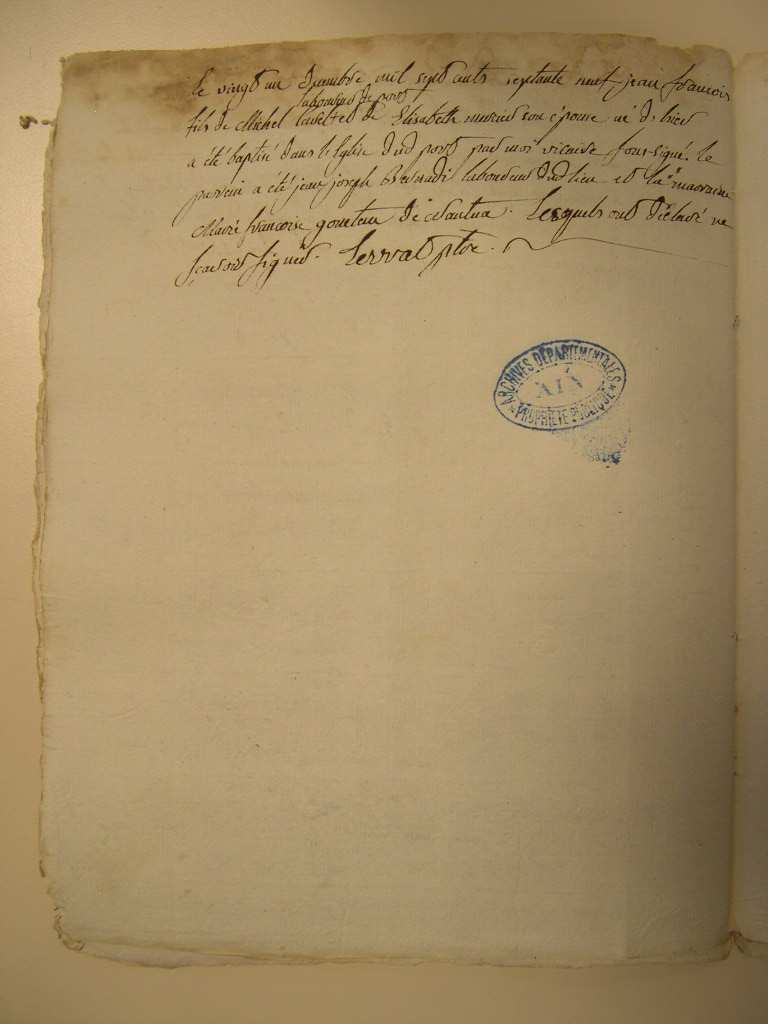 le vingt un decembre mil sept cents septante neuf, jean françois
laboureur de port
fils de Michel et de Elisabeth son epouse né d'hier
a été baptisé dans l'eglise dud port par moi vicaire soussigné. le
parrein a été jean joseph laboureur dud lieu et la maraine
Marie françoise de Nantua. Lesquels ont déclaré ne
sçavoir signer. Lerrat ptre.
ARCHIVES DÉPARTEMENTALES
AIN
PROPRIÉTÉ PUBLIQUE